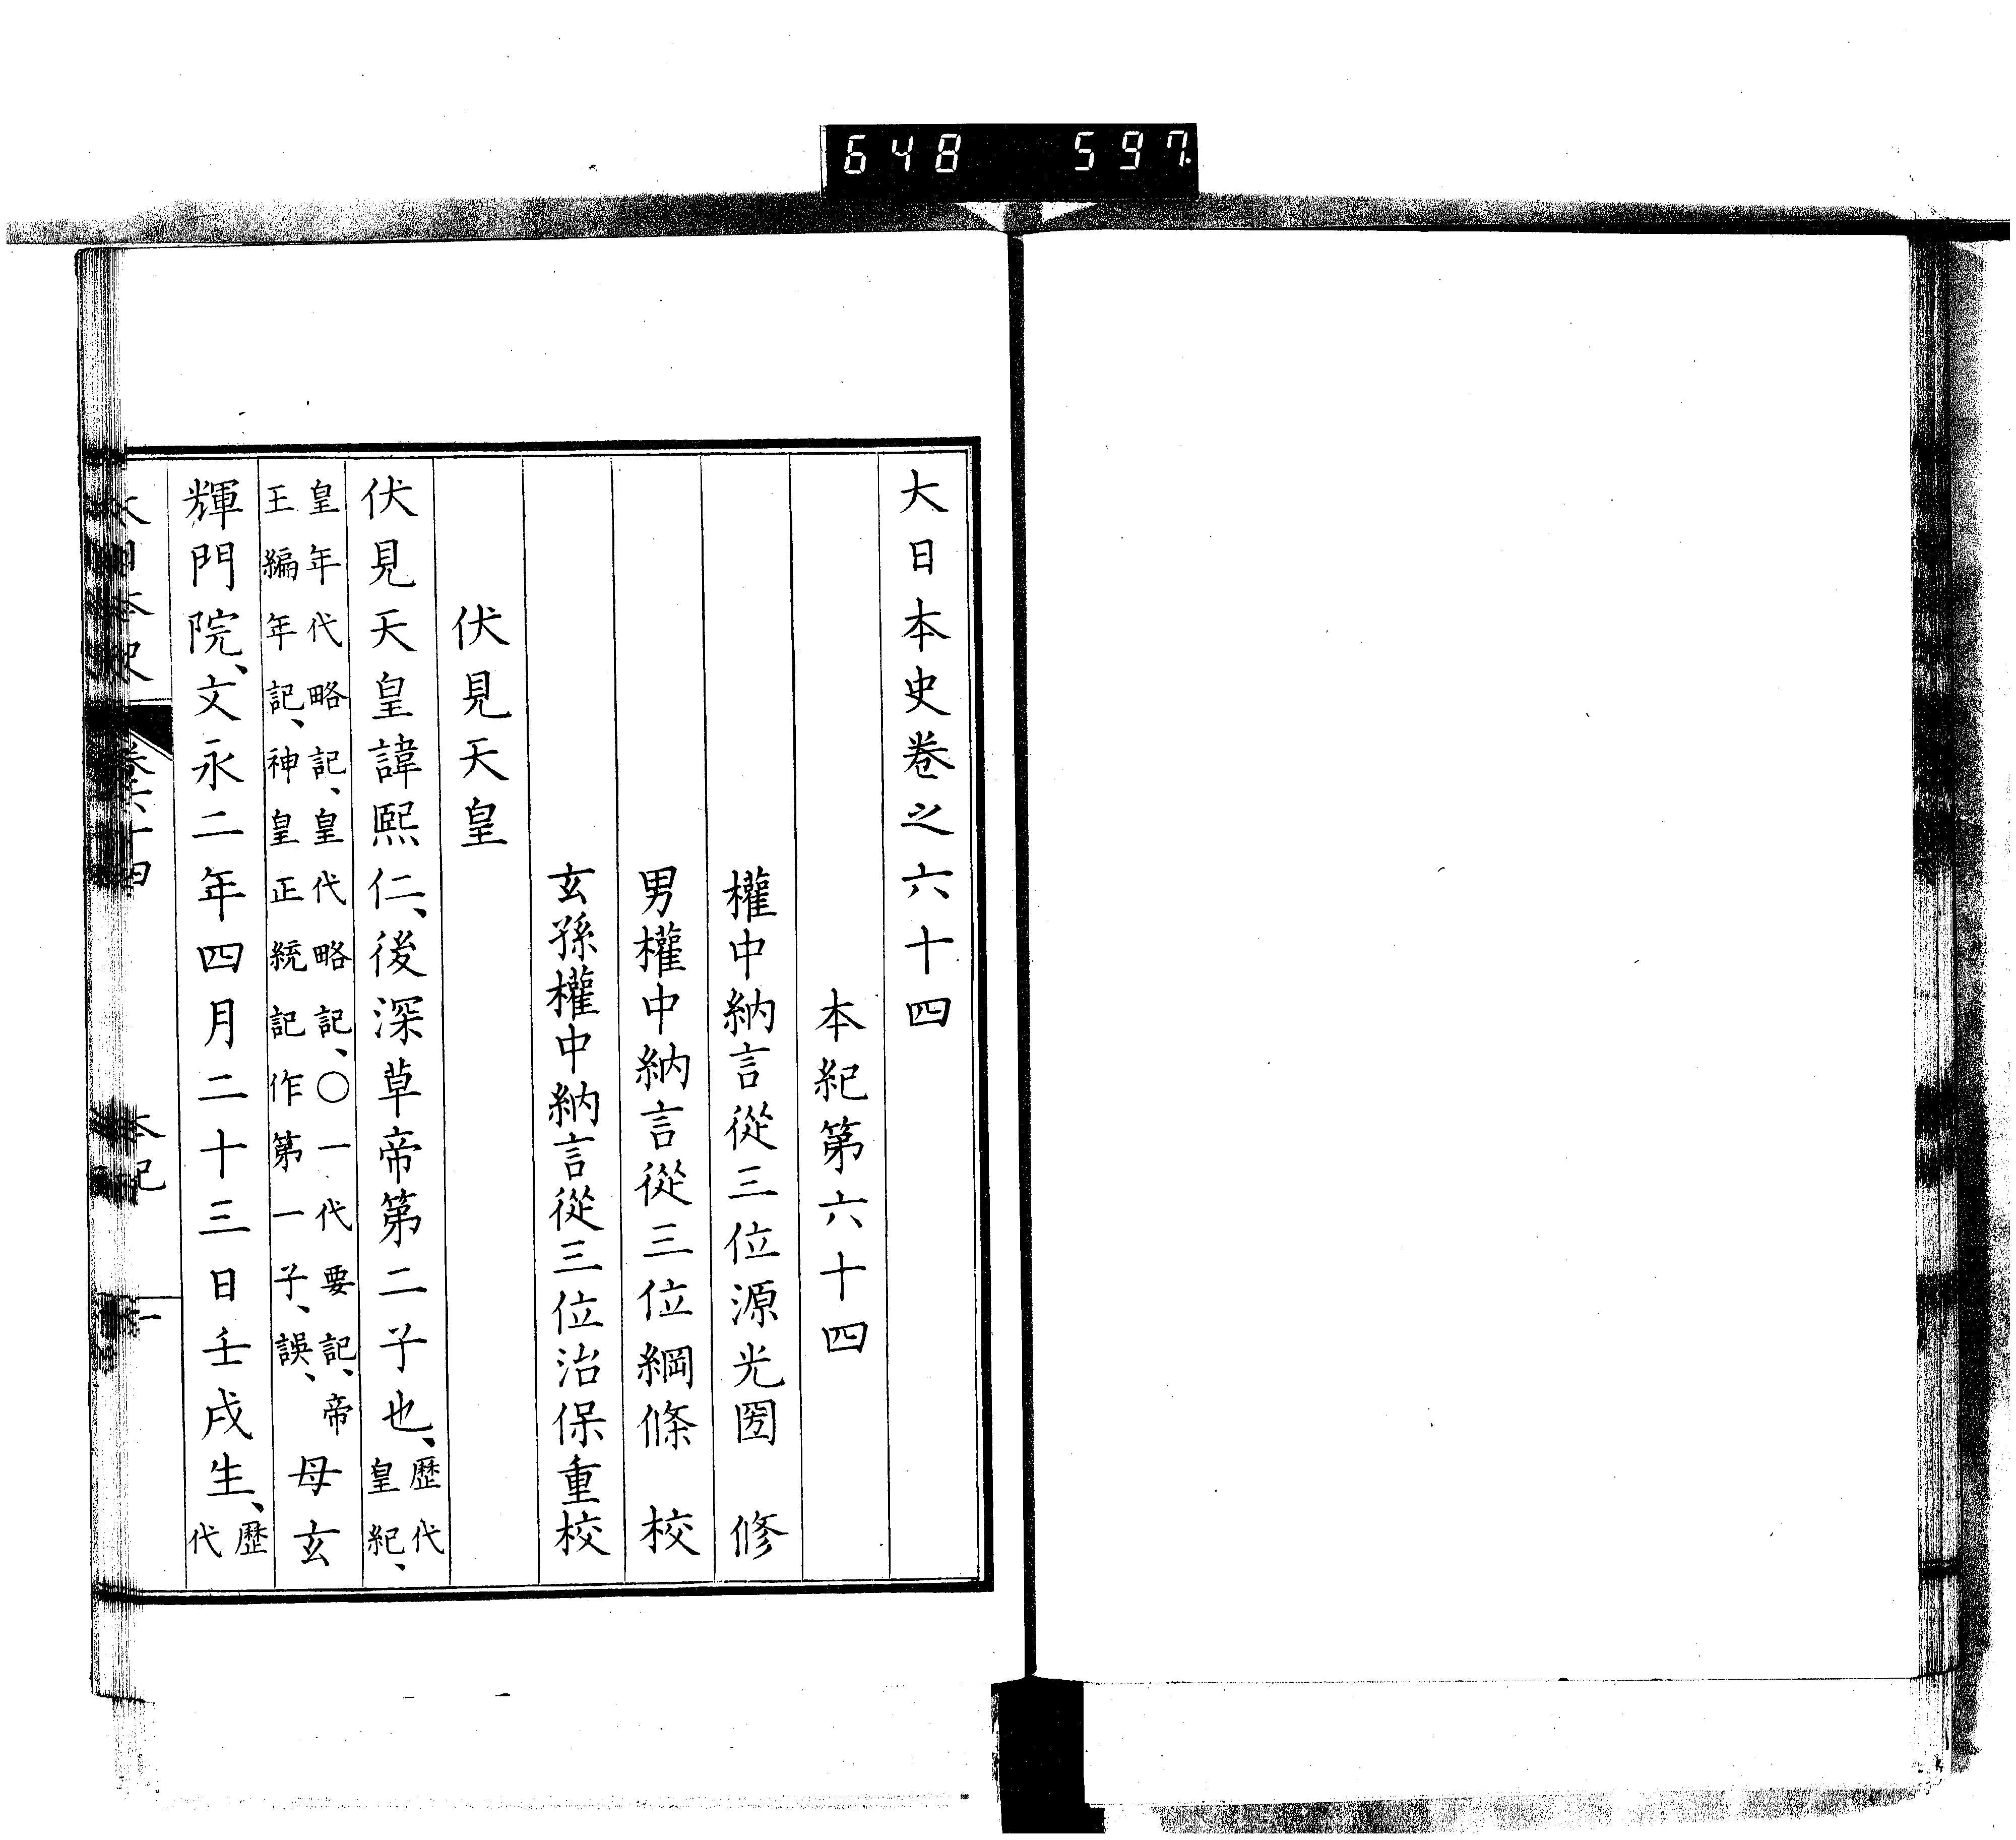 648 597.
大日本史卷之六十四
本紀第六十四
權中納言從三位源光圀 修
男權中納言從三位綱條 校
玄孫權中納言從三位治保重校
伏見天皇
伏見天皇諱熙仁、後深草帝第二子也、歷代皇紀、
皇年代略記、皇代略記、〇一代要記、帝王編年記、神皇正統記作第一子、誤、母玄
輝門院、文永二年四月二十三日壬戌生、歷代
卷六十四
本紀